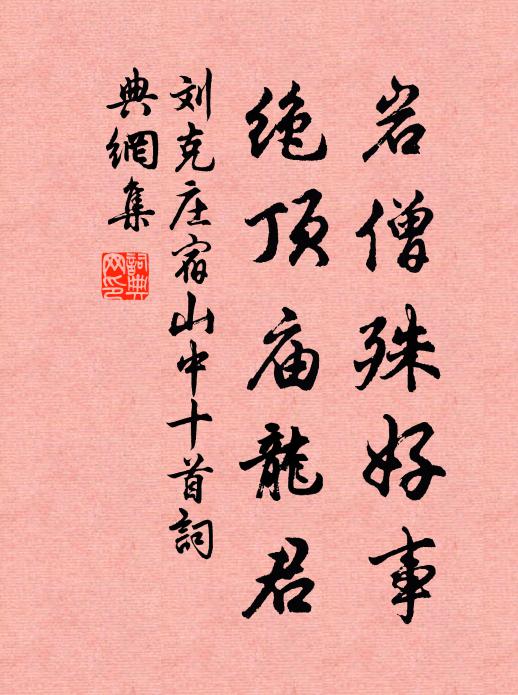 岩僧殊好事
绝顶庙龍君
刘克庄宿山中十首詞
典網集
詞典网印